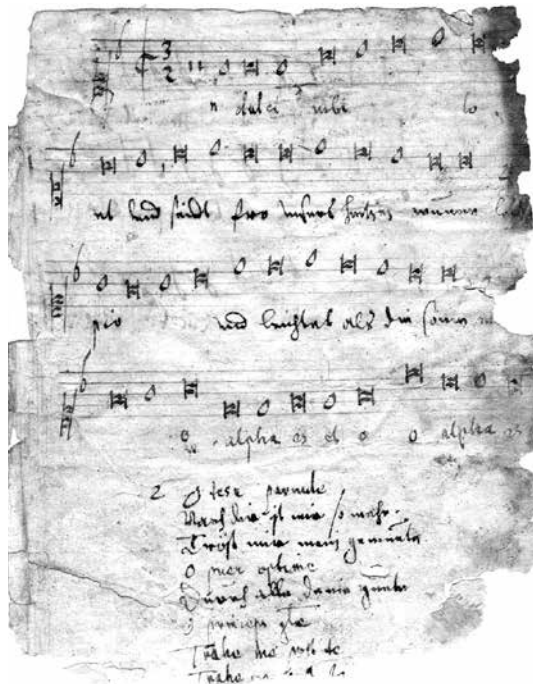 3
2
n dulci iubi lo
et und seidt fro unsers hertzen wunne
pio und leichtet als die sonne
alpha es et o o alpha es
2 O iesu parvule
Nach dir ist mir so
Tröst mir mein gemüete
O puer optime
Durch alle deine güete
O princeps glae
Trahe me post te
Trahe